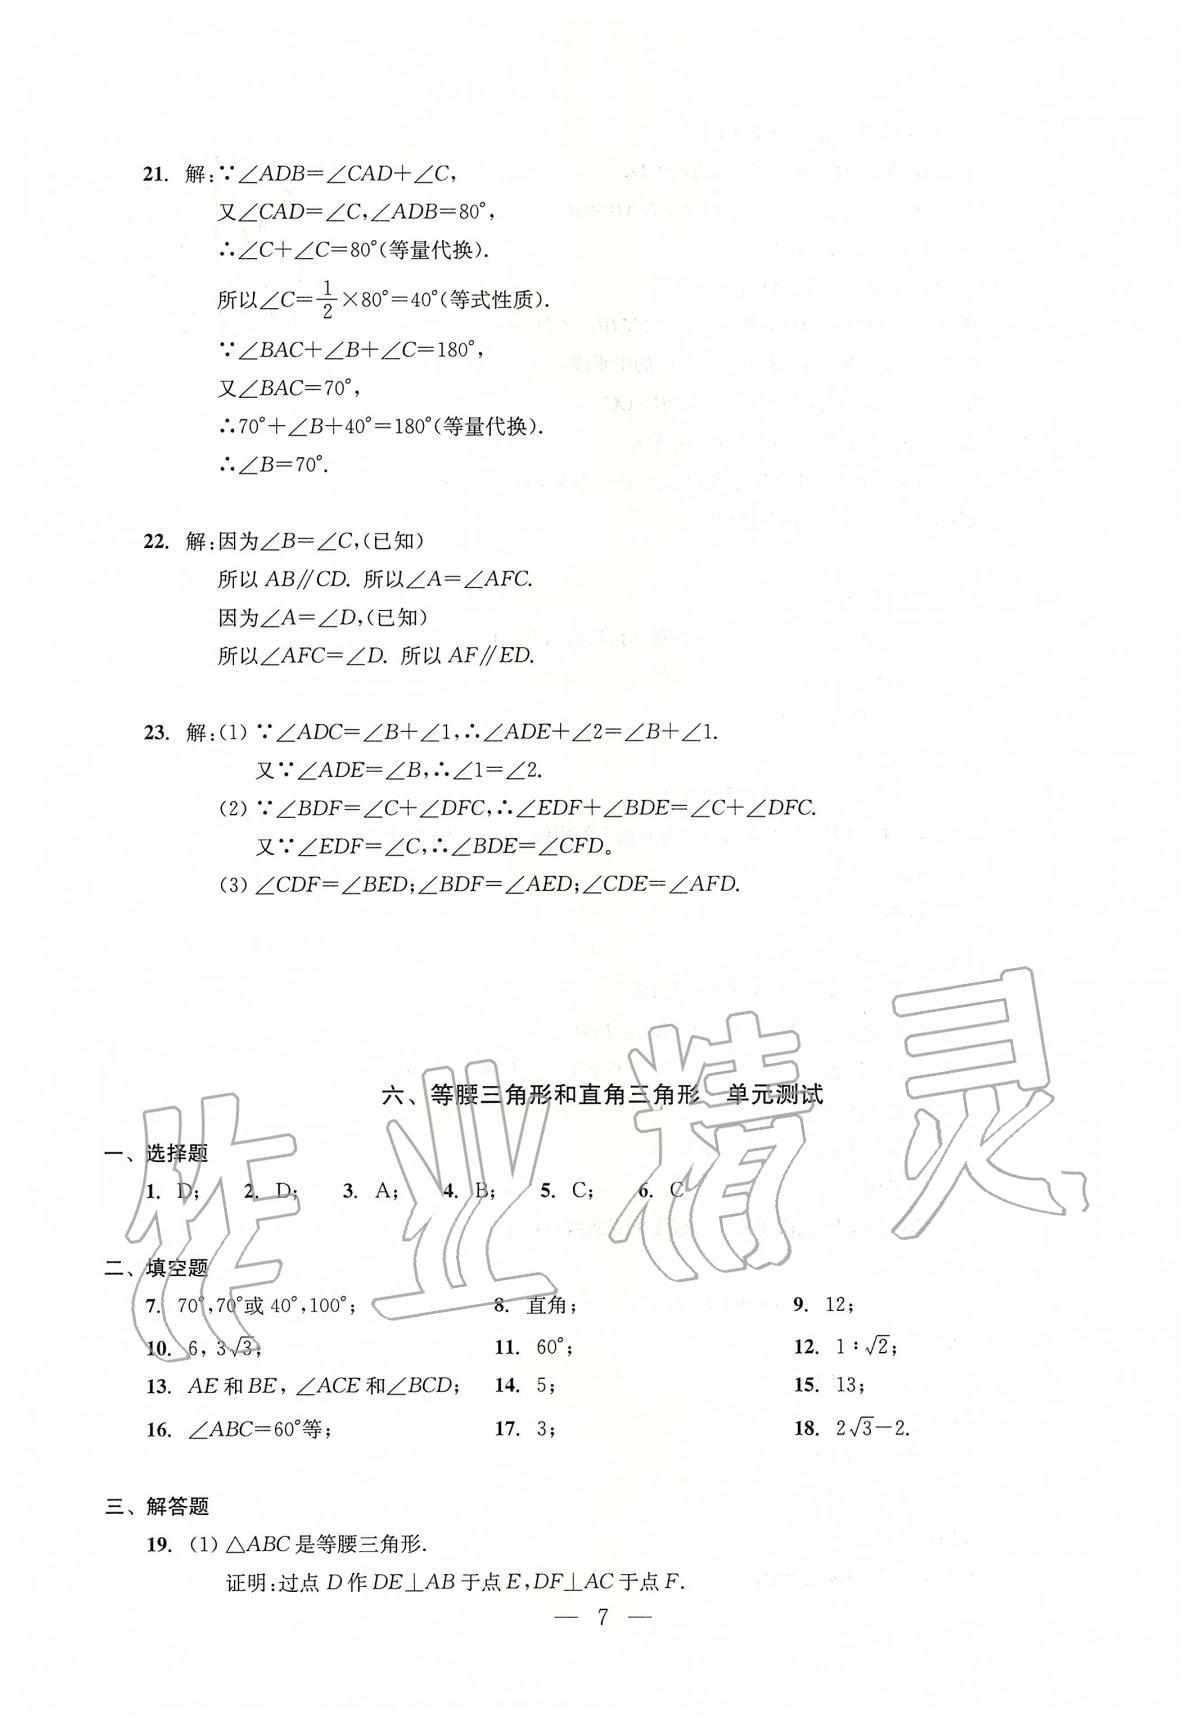 21. 解:∵∠ADB=∠CAD+∠C,
又∠CAD=∠C,∠ADB=80°,
∴∠C+∠C=80°(等量代换).
所以∠C=1/2×80°=40°(等式性质).
∵∠BAC+∠B+∠C=180°,
又∠BAC=70°,
∴70°+∠B+40°=180°(等量代换).
∴∠B=70°.
22. 解:因为∠B=∠C,(已知)
所以 AB∥CD. 所以∠A=∠AFC.
因为∠A=∠D,(已知)
所以∠AFC=∠D. 所以 AF∥ED.
23. 解:(1) ∵∠ADC=∠B+∠1,∴∠ADE+∠2=∠B+∠1.
又∵∠ADE=∠B,∴∠1=∠2.
(2) ∵∠BDF=∠C+∠DFC,∴∠EDF+∠BDE=∠C+∠DFC.
又∵∠EDF=∠C,∴∠BDE=∠CFD。
(3) ∠CDF=∠BED;∠BDF=∠AED;∠CDE=∠AFD.
作业精灵
六、等腰三角形和直角三角形 单元测试
一、选择题
1. D; 2. D; 3. A; 4. B; 5. C; 6. C
二、填空题
7. 70°,70°或 40°,100°; 8. 直角; 9. 12;
10. 6, 3√3; 11. 60°; 12. 1∶√2;
13. AE 和 BE, ∠ACE 和∠BCD; 14. 5; 15. 13;
16. ∠ABC=60°等; 17. 3; 18. 2√3-2.
三、解答题
19. (1) △ABC 是等腰三角形.
证明:过点 D 作 DE⊥AB 于点 E,DF⊥AC 于点 F.
— 7 —